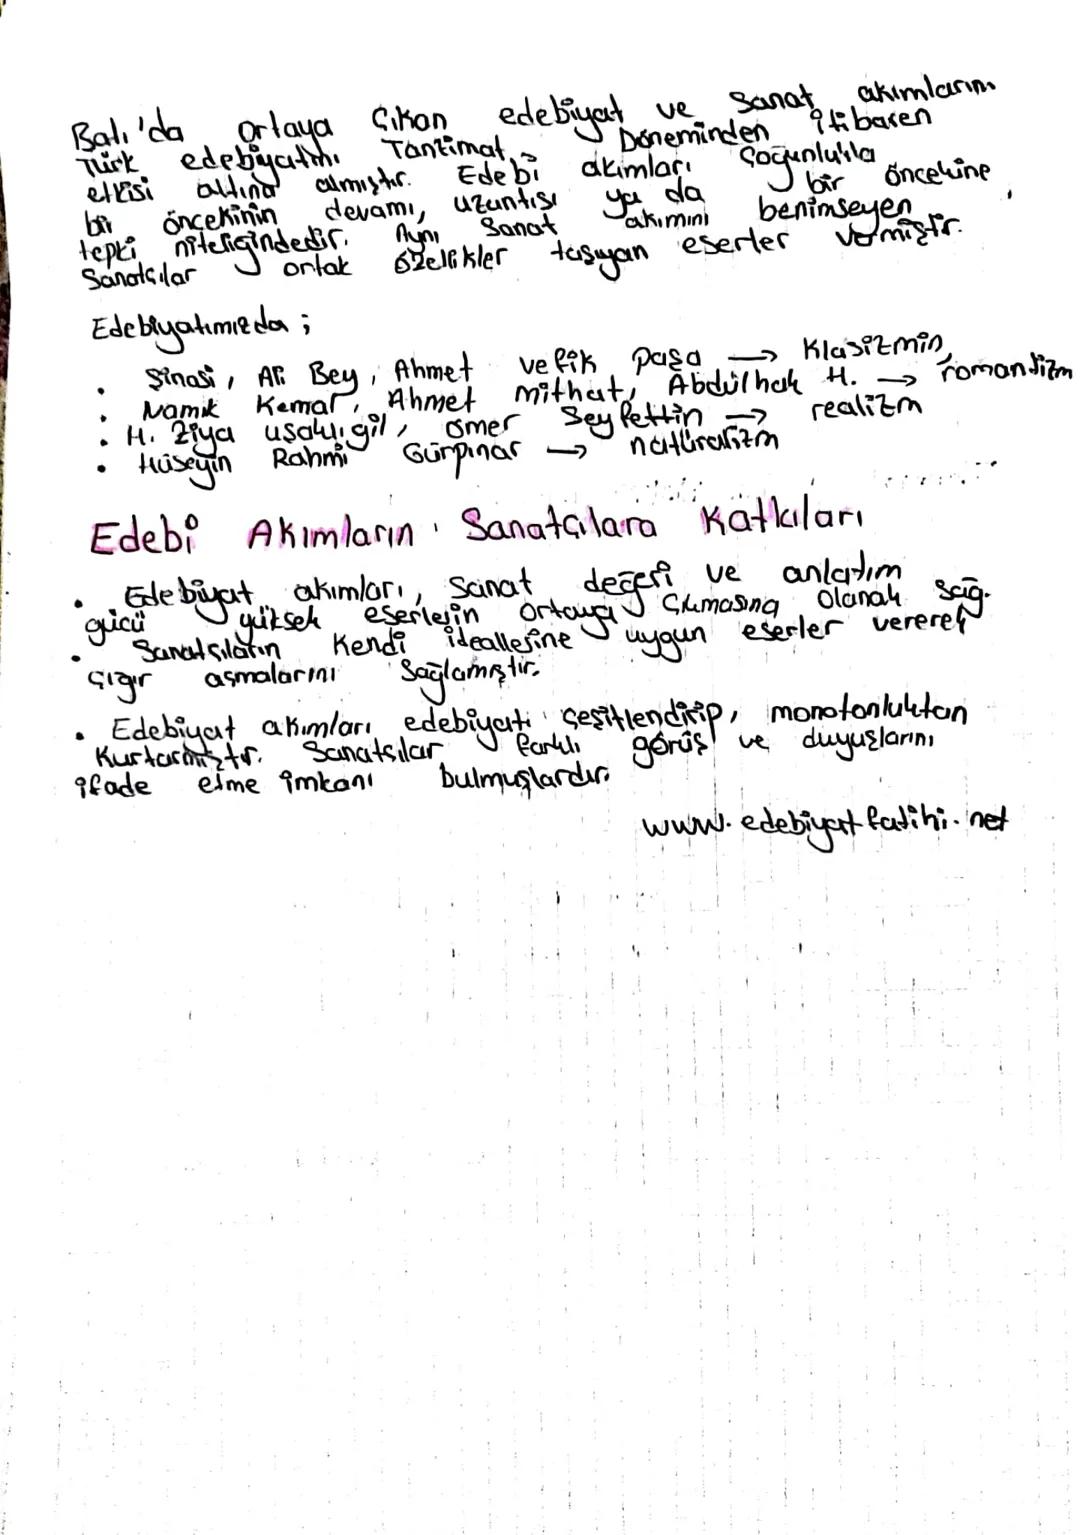 Batı'da ortaya çıkan edebiyat ve sanat akımlarını
Türk edebiyatını Tanzimat Döneminden itibaren
etkisi altına almıştır. Edebi akımları çoğunlukla
bir öncekinin devamı, uzantısı ya da bir öncekine
tepki niteligindedir. Aynı Sanat akımını benimseyen
Sanatçılar ortak özellikler taşıyan eserler vermiştir.
Edebiyatımızda ;
• Şinasi, Ali Bey, Ahmet vefik paşa → Klasizmin
• Namık Kemal, Ahmet mithat, Abdülhak H. → romantizm
• H. Ziya uşaklıgil, ömer Seyfettin → realizm
• Hüseyin Rahmi Gürpınar → natüralizm
Edebi Akımların Sanatçılara Katkıları
• Edebiyat akımları, sanat değeri ve anlatım
gücü yüksek eserlerin ortaya çıkmasına olanak sağ.
• Sanatçıların kendi ideallerine uygun eserler vererek
çığır açmalarını sağlamıştır.
• Edebiyat akımları edebiyatı çeşitlendirip, monotonluktan
Kurtarmıştır. Sanatçılar farklı görüş ve duyuşlarını
ifade etme imkanı bulmuşlardır.
www.edebiyatfatihi.net